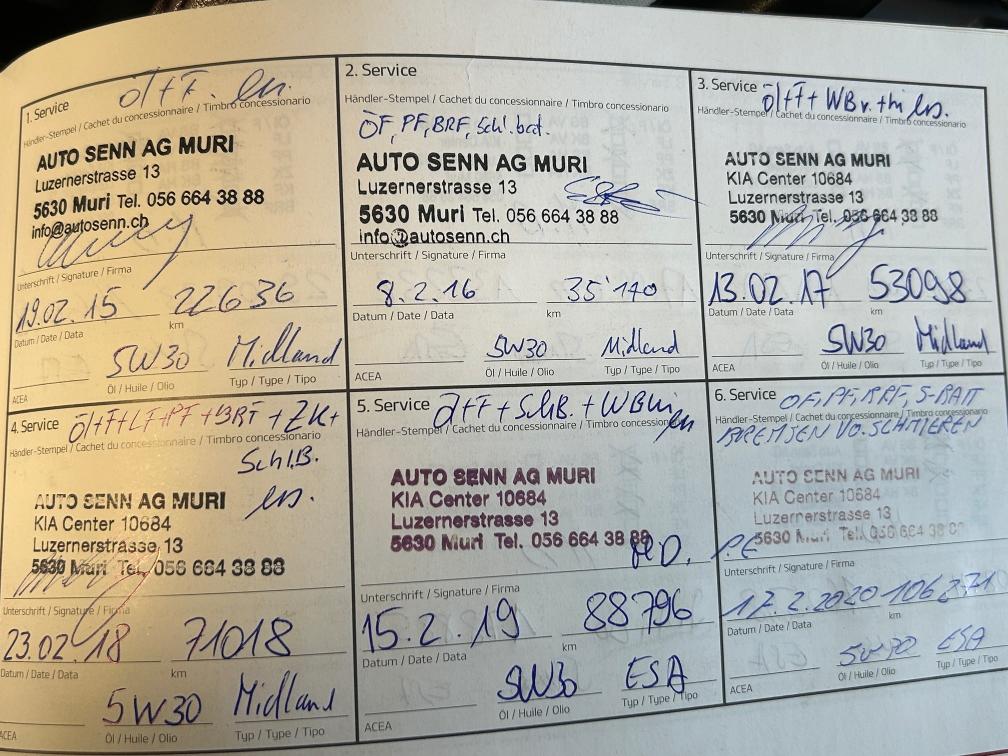 1. Service Öl+F.
Händler-Stempel / Cachet du concessionnaire / Timbro concessionario
AUTO SENN AG MURI
Luzernerstrasse 13
5630 Muri Tel. 056 664 38 88
info@autosenn.ch
Unterschrift / Signature / Firma
19.02.15 22636
Datum / Date / Data km
5W30 Midland
ACEA Öl / Huile / Olio Typ / Type / Tipo
2. Service
Händler-Stempel / Cachet du concessionnaire / Timbro concessionario
ÖF, PF, BRF, Schl.bat.
AUTO SENN AG MURI
Luzernerstrasse 13
5630 Muri Tel. 056 664 38 88
info@autosenn.ch
Unterschrift / Signature / Firma
8.2.16 35'140
Datum / Date / Data km
5W30 Midland
ACEA Öl / Huile / Olio Typ / Type / Tipo
3. Service Öl+F+WB
Händler-Stempel / Cachet du concessionnaire / Timbro concessionario
AUTO SENN AG MURI
KIA Center 10684
Luzernerstrasse 13
5630 Muri Tel. 056 664 38 88
Unterschrift / Signature / Firma
13.02.17 53098
Datum / Date / Data km
5W30 Midland
ACEA Öl / Huile / Olio Typ / Type / Tipo
4. Service Öl+F+LF+PF+BRF+ZK+
Händler-Stempel / Cachet du concessionnaire / Timbro concessionario
Schl.B.
AUTO SENN AG MURI
KIA Center 10684
Luzernerstrasse 13
5630 Muri Tel. 056 664 38 88
Unterschrift / Signature / Firma
23.02.18 71018
Datum / Date / Data km
5W30 Midland
ACEA Öl / Huile / Olio Typ / Type / Tipo
5. Service Öl+F+SchB.+WB
Händler-Stempel / Cachet du concessionnaire / Timbro concessionario
AUTO SENN AG MURI
KIA Center 10684
Luzernerstrasse 13
5630 Muri Tel. 056 664 38 88
Unterschrift / Signature / Firma
15.2.19 88796
Datum / Date / Data km
5W30 ESA
ACEA Öl / Huile / Olio Typ / Type / Tipo
6. Service ÖF, PF, BRF, S-BATT
Händler-Stempel / Cachet du concessionnaire / Timbro concessionario
BREMSEN VO. SCHMIEREN
AUTO SENN AG MURI
KIA Center 10684
Luzernerstrasse 13
5630 Muri Tel. 056 664 38 88
Unterschrift / Signature / Firma
17.2.2020 106271
Datum / Date / Data km
5W30 ESA
ACEA Öl / Huile / Olio Typ / Type / Tipo